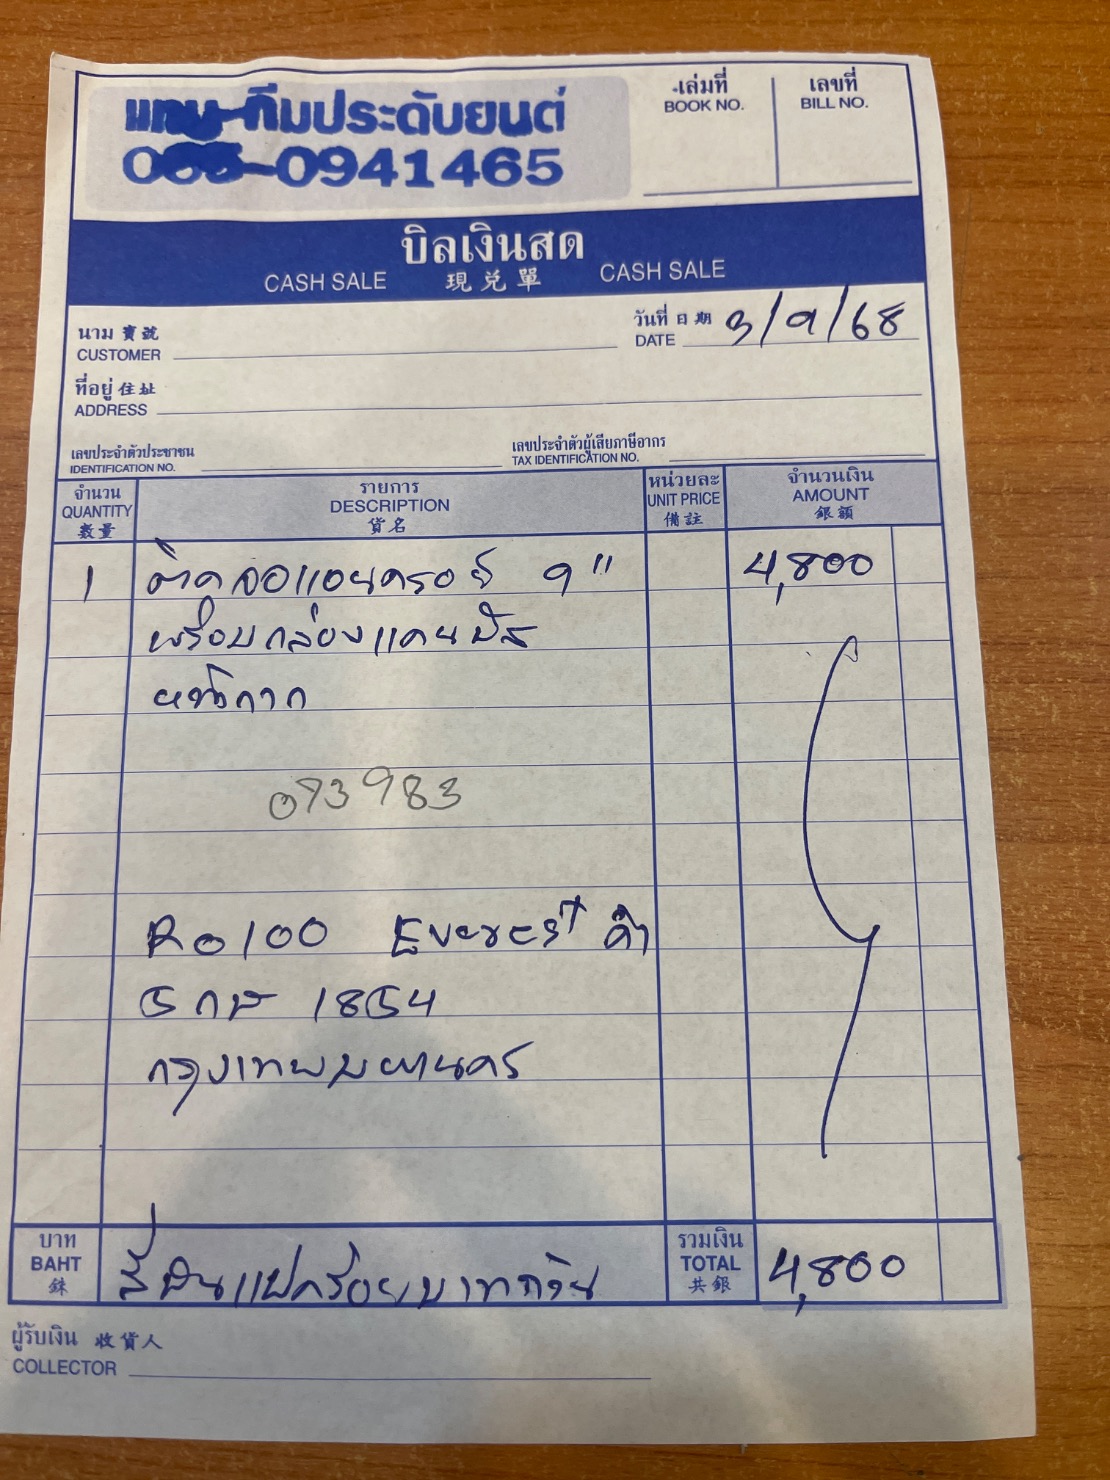 ทีมประดับยนต์
-0941465
เล่มที่
BOOK NO.
เลขที่
BILL NO.
บิลเงินสด
CASH SALE 現兌單 CASH SALE
นาม 寶號
CUSTOMER
วันที่ 日期 3/9/68
DATE
ที่อยู่ 住址
ADDRESS
เลขประจำตัวประชาชน
IDENTIFICATION NO.
เลขประจำตัวผู้เสียภาษีอากร
TAX IDENTIFICATION NO.
จำนวน
QUANTITY
數量
รายการ
DESCRIPTION
貨名
หน่วยละ
UNIT PRICE
備註
จำนวนเงิน
AMOUNT
銀額
1 ติดจอแอนดรอย์ 9" 4,800
พร้อมกล่องแคนบัส
หน้ากาก
073983
Ro100 Everest ดำ
5กษ 1854
กรุงเทพมหานคร
บาท
BAHT
銖
สี่พันแปดร้อยบาทถ้วน
รวมเงิน
TOTAL
共銀
4,800
ผู้รับเงิน 收貨人
COLLECTOR